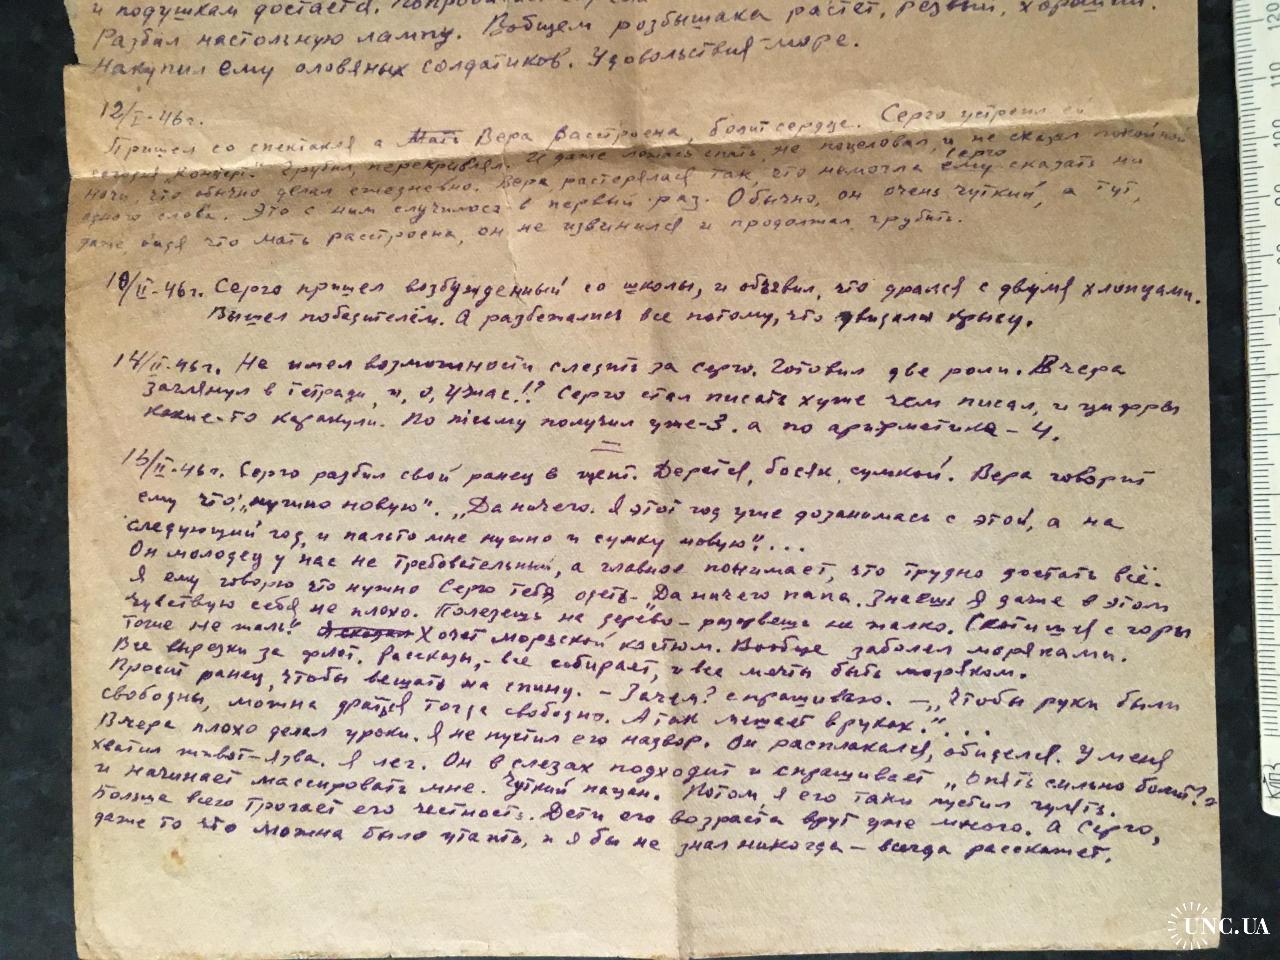 и подушкам достается.
Разбил настольную лампу. Вобщем розбышака растет, резвый, хороший.
Накупил ему оловяных солдатиков. Удовольствия – море.
12/I-46г.
Пришел со спектакля а Мать Вера расстроена, болит сердце. Серго устроил ей
сегодня „концерт". Грубил, перекривлял. И даже ложась спать, не поцеловал, и не сказал покойной
ночи, что обычно делал ежедневно. Вера растерялась так, что немогла ему Серго сказать ни
одного слова. Это с ним случилось в первый раз. Обычно, он очень чуткий, а тут,
даже видя что мать расстроена, он не извинился и продолжал грубить.
10/II-46г. Серго пришел возбужденный со школы, и объявил, что дрался с двумя хлопцами.
Вышел победителем. А разбежались все потому, что увидали крысу.
14/II-46г. Не имел возможности следить за Серго. Готовил две роли. Вчера
заглянул в тетради, и, о, ужас!! Серго стал писать хуже чем писал, и цифры
какие-то каракули. По письму получил уже-3. а по арифматике – 4.
15/II-46г. Серго разбил свой ранец в щент. Дерется, босяк, сумкой. Вера говорит
ему что, „нужно новую". „Да ничего. Я этот год уже дозанимась с этой, а на
следующий год, и пальто мне нужно и сумку новую"....
Он молодец у нас не требовательный, а главное понимает, что трудно достать всё.
Я ему говорю что нужно Серго тебя одеть – Да ничего папа. Знаешь я даже в этом
чувствую себя не плохо. Полезешь на дерево – разорвешь не жалко. Скотишся с горы
тоже не жаль". Хочет морьской костюм. Вообще заболел моряками.
Все вырезки за флот. Рассказы, – все собирает, и все мечты быть моряком.
Просит ранец, чтобы вешать на спину. – Зачем? спрашиваю. – „Чтобы руки были
свободны, можна драться тогда свободно. А так мешает в руках."....
Вчера плохо делал уроки. Я не пустил его надвор. Он расплакался, обиделся. У меня
хватил живот-язва. Я лег. Он в слезах подходит и спрашивает „опять сильно болит?"
и начинает массировать мне. Чуткий пацан. Потом, я его таки пустил гулять.
Больше всего трогает его честность. Дети его возраста врут уже много. А Серго,
даже то что можна было утаить, и я бы не знал никогда – всегда расскажет.
120
110
КПЗ
UNC.UA